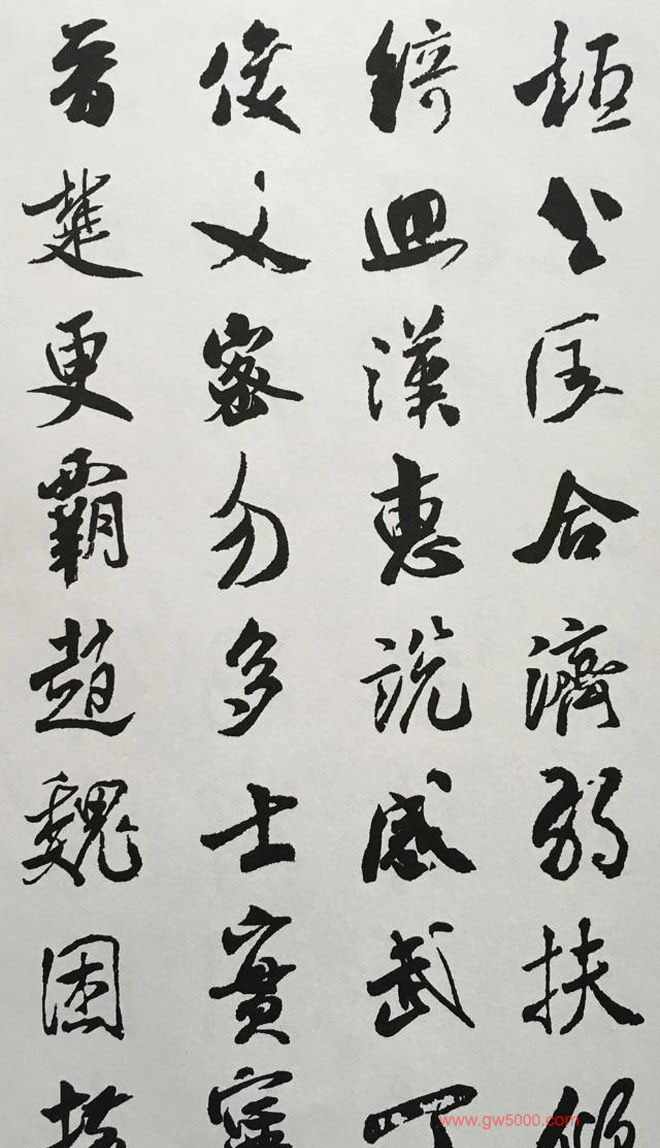 桓公匡合濟弱扶
綺迴漢惠說感武丁
俊乂密勿多士寔寧
晉楚更霸趙魏困橫
www.gw5000.com